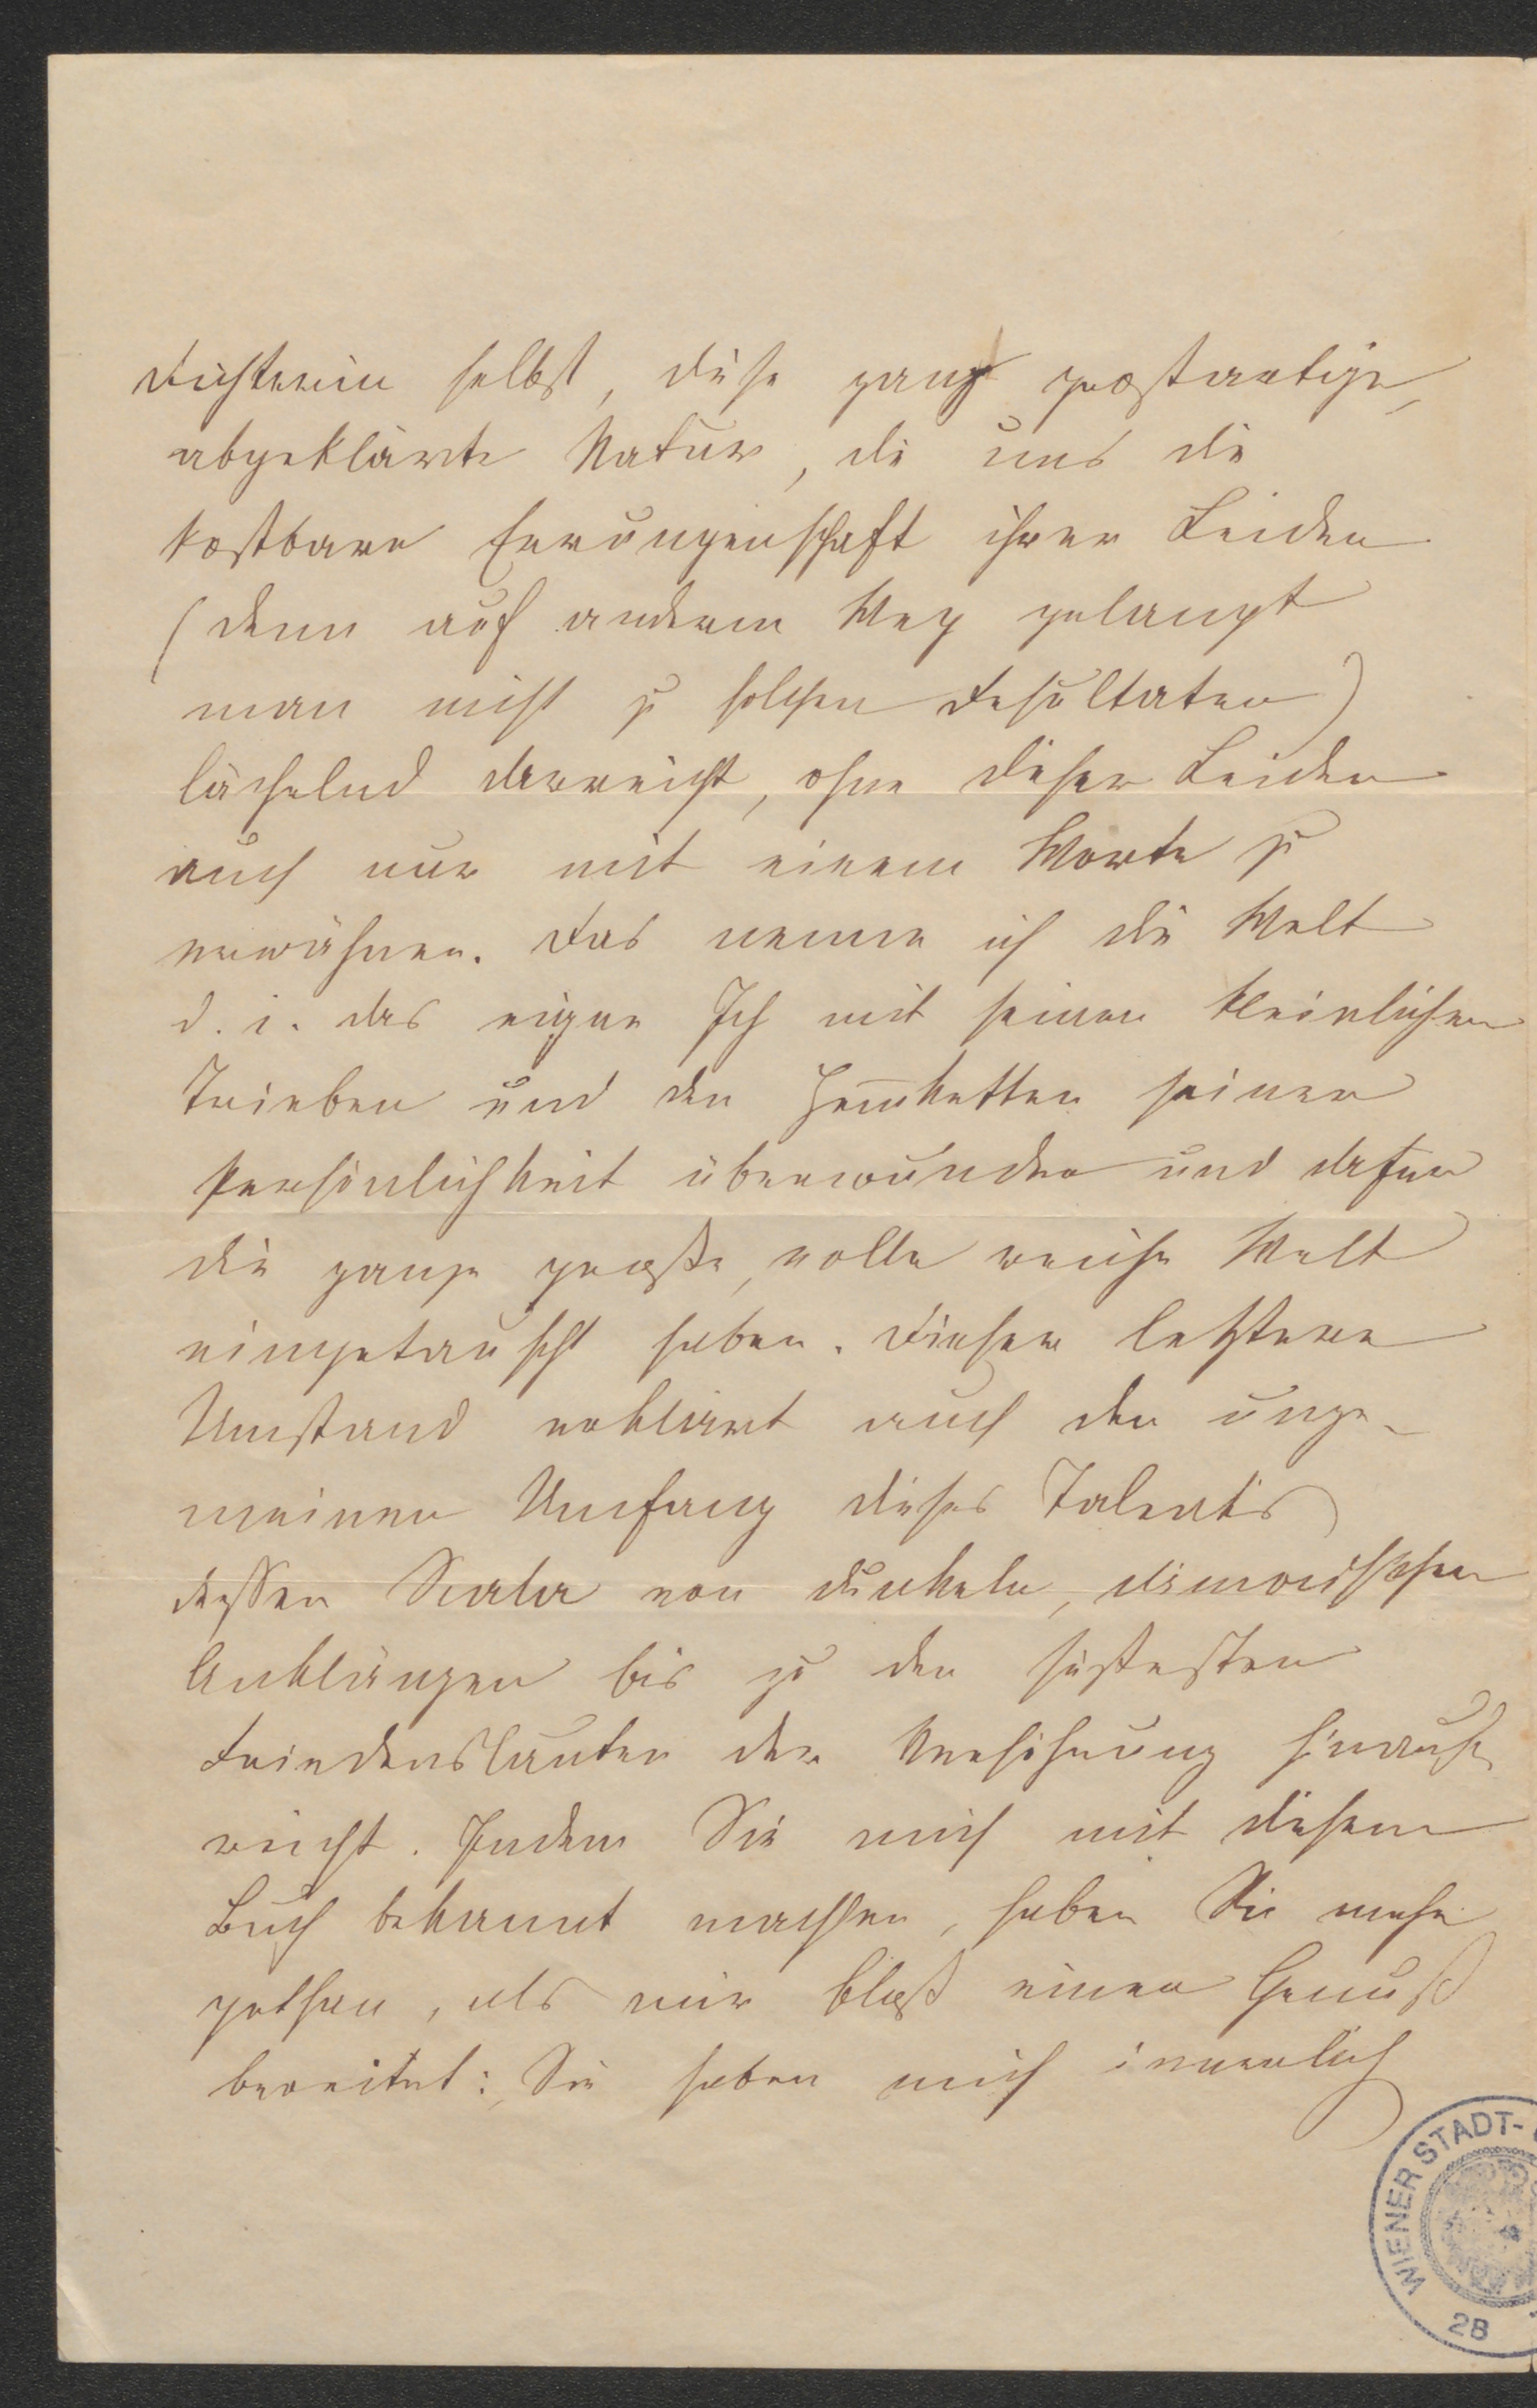 Dichterin selbst, diese ganz großartige,
abgeklärte Natur, die uns die
kostbare Errungenschaft ihrer Leiden
(denn auf anderem Weg gelangt
man nicht zu solchen Resultaten)
lächelnd darreicht, ohne dieser Leiden
auch nur mit einem Worte zu
erwähnen. Das nenne ich die Welt
d. i. das eigene Ich mit seinen kleinlichen
Trieben und den Hem̅ketten seiner
Persönlichkeit überwunden und dafür
die ganze große, volle reiche Welt
eingetauscht haben. Dieser letztere
Umstand erklärt auch den unge-
meinen Umfang dieses Talents
dessen Scala von dunkeln, dämonischen
Anklängen bis zu den süßesten
Friedenslauten der Versöhnung hinauf
reicht. Indem Sie mich mit diesem
Buch bekannt machten, haben Sie mehr
gethan, als mir bloß einen Genuß
bereitet: Sie haben mich innerlich
WIENER STADT-
28